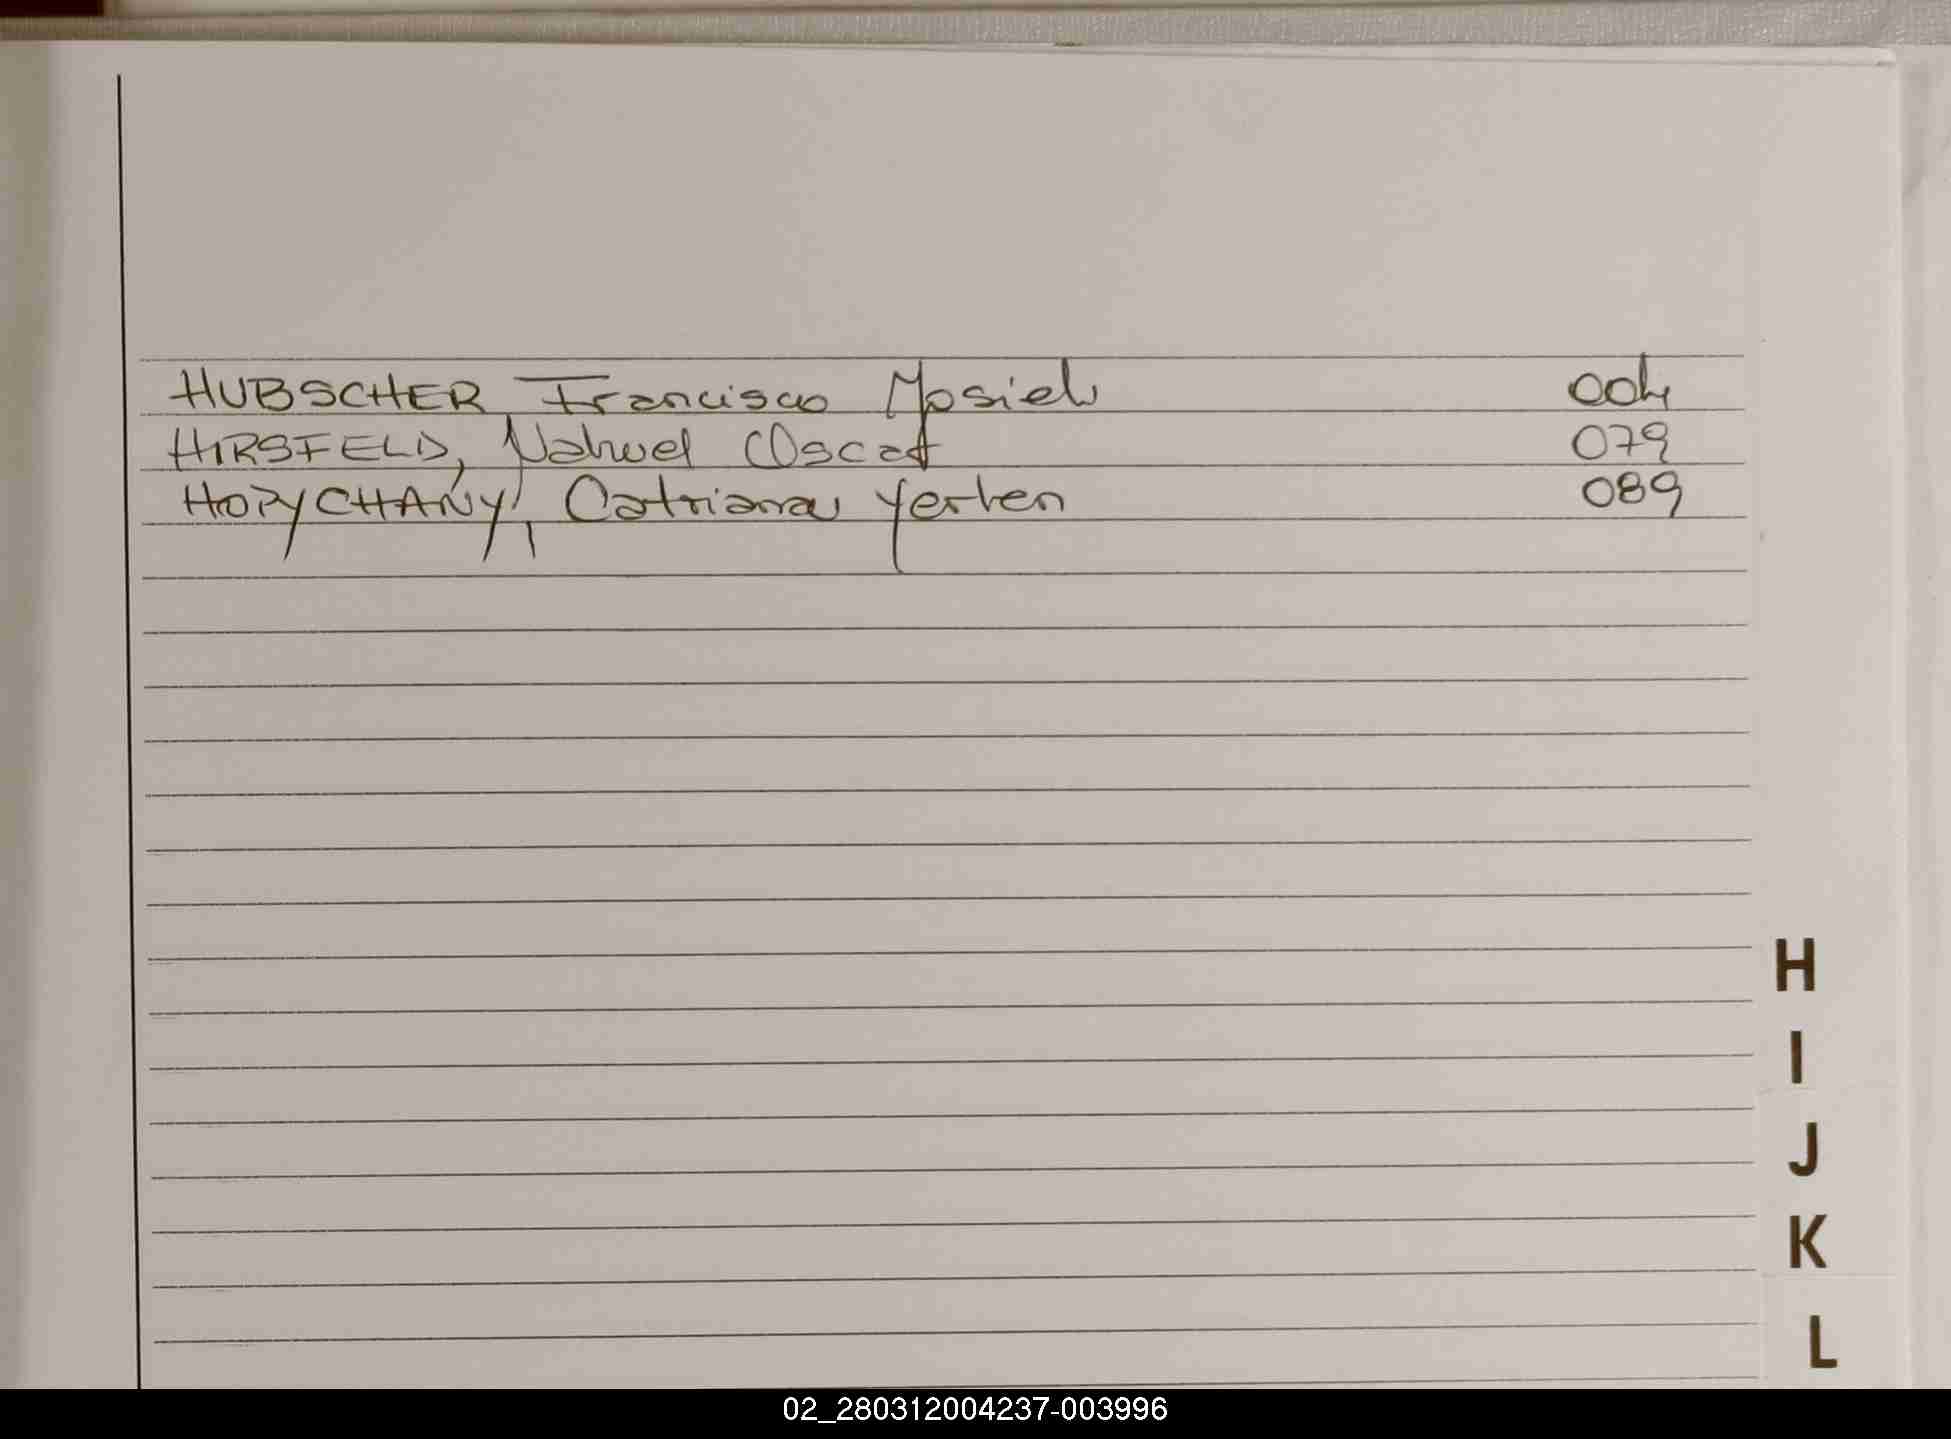 HUBSCHER, Francisco Mosieh 004
HIRSFELD, Nahuel Oscar 079
HOPYCHANY, Catriana Yerlen 089
H
I
J
K
L
02_280312004237-003996